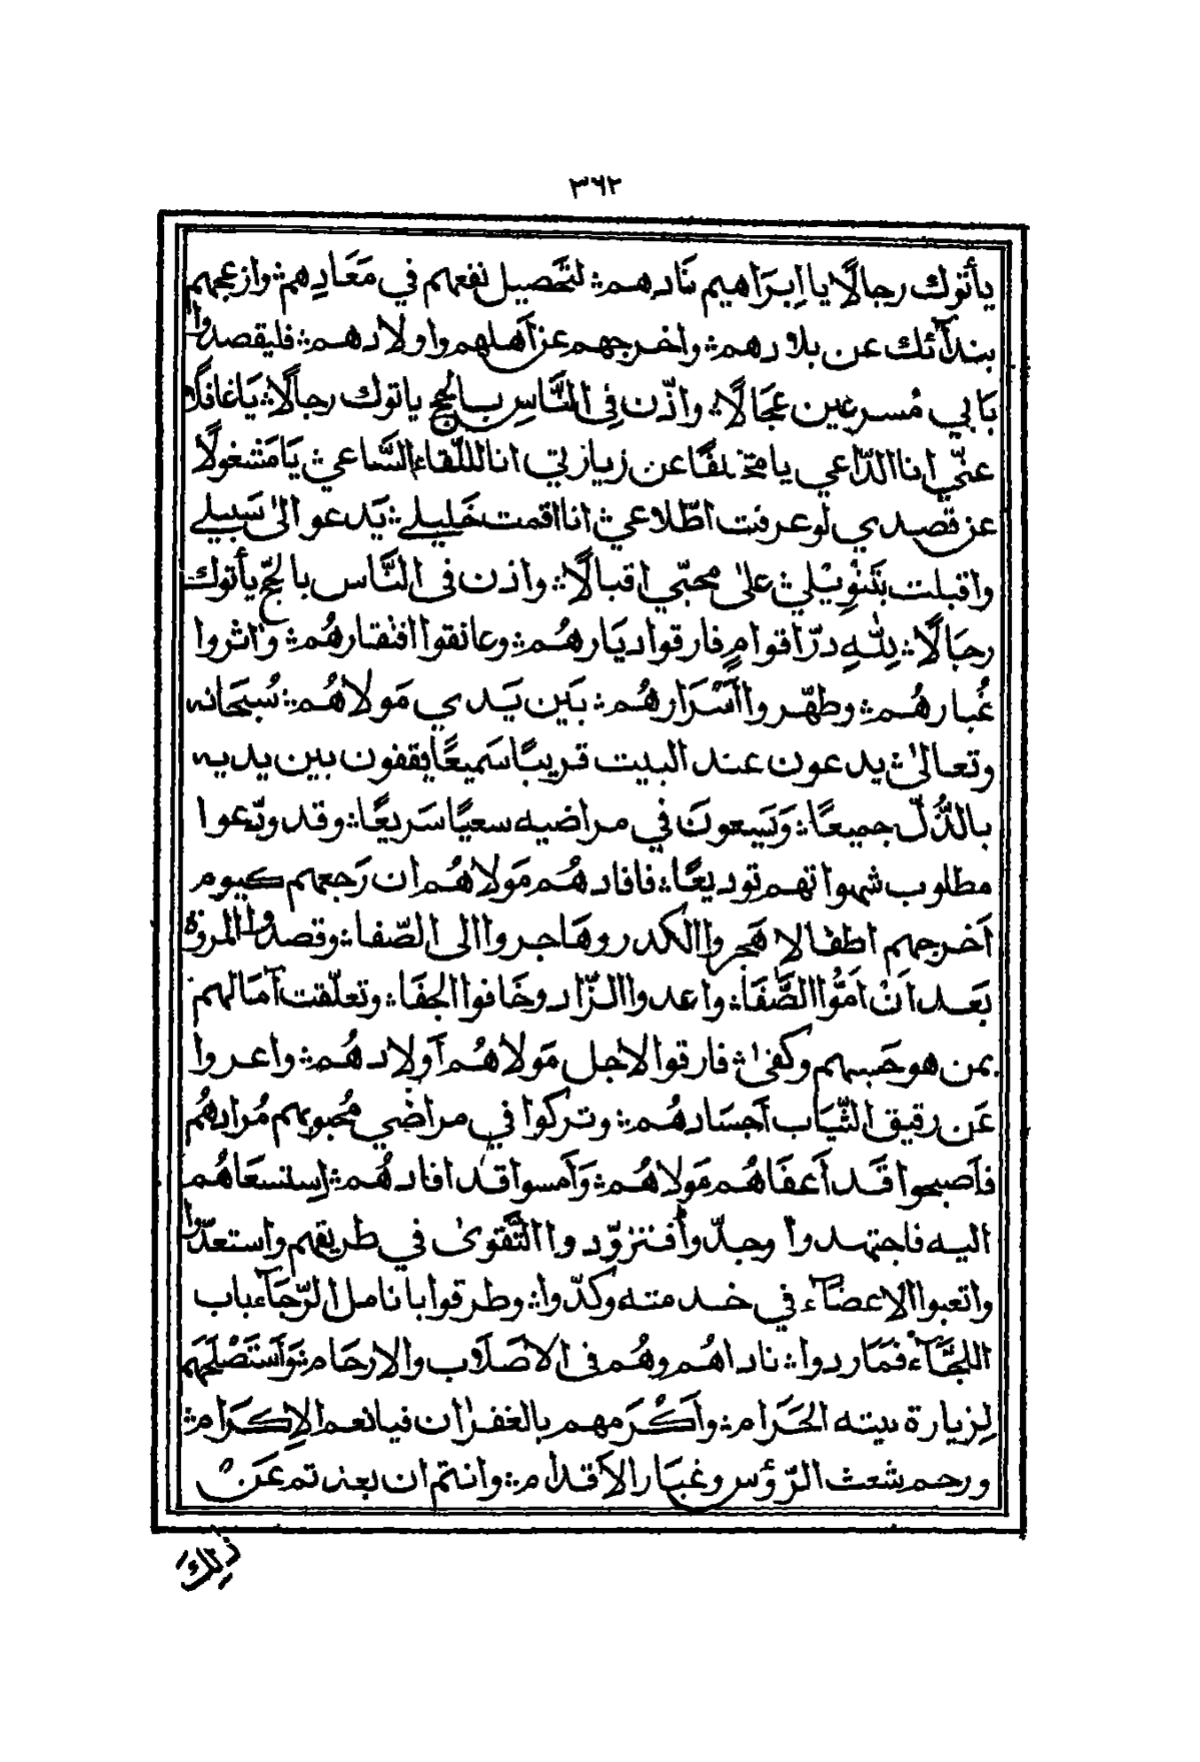 ٣٦٢
يأتوك رجالًا يا اِبرَاهيم نَادِهم ؞ لتحَصيل نفعهم في مَعَادِهم ؞ وازعجهم
بندآئك عن بلادهم ؞ واخرجهم عن آهلهم واولادهم ؞ فليقصدوا
بَابي مُسرعين عجَالًا ؞ واذّن فِي النَّاسِ بالحج ياتوك رجالًا ؞ يَاغافلًا
عنّي انا الدّاعي يا متخلفًا عن زيارتي انا للقاء السَّاعي ؞ يَا مَشغولًا
عن قصدي لو عرفت اطّلاعي ؞ انا اقمت خَليلي ؞ يَدعو الىٰ سَبيلي
واقبلت بتَنْوِيْلي ؞ علىٰ محبّي اقبالًا ؞ واذن فى النَّاس بالحجّ يأتوك
رجَالًا ؞ لِلّٰهِ درّ اقوامٍ فارقوا ديَارهُم ؞ وعانقوا افتقارهُم ؞ واثروا
غُبارهُم ؞ وطهّروا اَسْرَارهُم ؞ بَين يَدي مَولاهُم ؞ سُبحَانه
وتعالىٰ ؞ يدعون عند البيت قريبًا سَميعًا يقفون بين يديه
بالذُّلّ جميعًا ؞ وَيَسعونَ في مراضيه سعيًا سَريعًا ؞ وقد ودّعوا
مطلوب شهواتهم توديعًا ؞ فافادهُم مَولاهُم ان رَجعهم كيوم
اَخرجهم اطفالا هَجروا الكدر وهَاجروا الى الصّفا ؞ وقصدوا المروة
بَعد اَنْ اَمُّوا الصَّفَا ؞ واعدوا الزّاد وخَافوا الجفَا ؞ وتعلّقت آمَالهم
بمن هو حَسبهم وكفىٰ ؞ فارقوا لاجل مَولاهُم اَولادهُم ؞ واعروا
عَن رقيق الثّيَاب اَجسَادهُم ؞ وتركوا في مراضي مُحبوبهم مُرادهُم
فاَصبحوا قَد اَعفَاهُم مَولاهُم ؞ وَاَمسوا قد افادهُم ؞ اِستسعَاهُم
اليه فاجتهدوا وجدّوا فتزوّدوا التَّقوىٰ في طريقهم واستعدّوا
واتعبوا الاعضآء في خدمته وكدّوا ؞ وطرقوا بانامل الرّجَآء باب
اللجَآء فمَا ردوا ؞ ناداهُم وهُم فى الاصلاب والارحَام ؞ وَاَستَصْلَحَهم
لِزيارة بيته الحَرَام ؞ واَكْرَمهم بالغفرٰان فيا نعم الاِكرَام ؞
ورحم شعث الرّؤس وغبَار الاَقدام ؞ وانتم ان بعدتم عَنْ
ذٰلِكَ